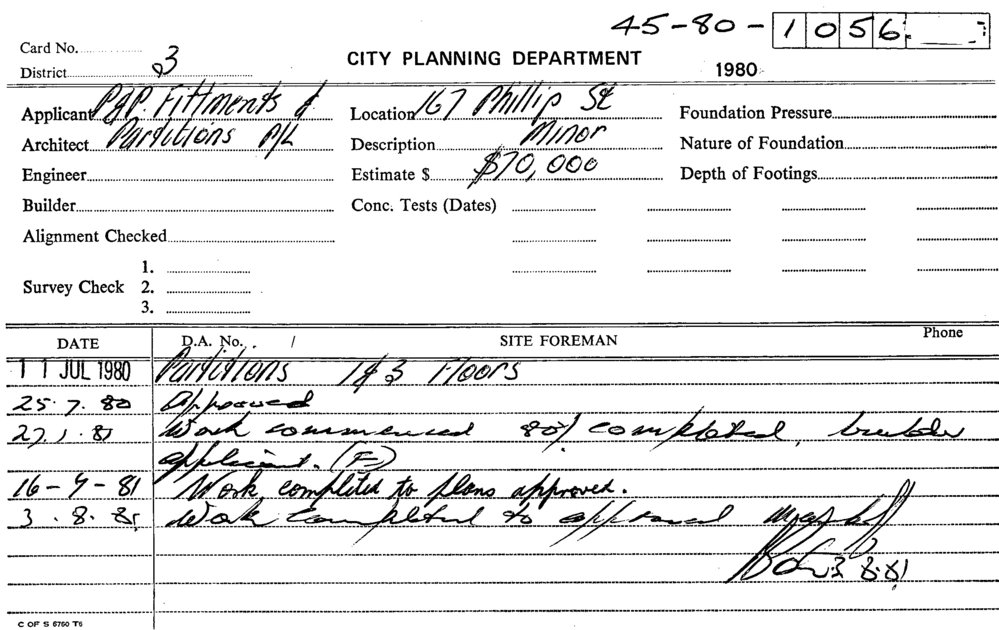 45-80-1056
Card No.
District 3
CITY PLANNING DEPARTMENT
1980
Applicant P&P. Fittments &
Architect Partitions P/L
Engineer
Builder
Alignment Checked
Survey Check 1.
2.
3.
Location 167 Phillip St
Description Minor
Estimate $ $70,000
Conc. Tests (Dates)
Foundation Pressure
Nature of Foundation
Depth of Footings
DATE D.A. No. / SITE FOREMAN Phone
11 JUL 1980 Partitions 1 & 3 Floors
25.7.80 Approved
27.1.81 Work commenced 80% completed, builder
applicant. (F)
Work completed to plans approved.
3.8.81 Work completed to approval
3.8.81
C OF S 6760 T6